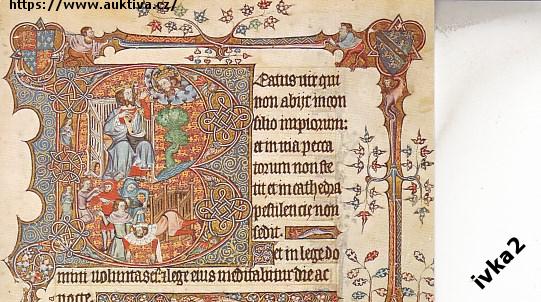 https://www.auktiva.cz/
Eatus vir qui
non abijt in con
silio impiorum:
et in uia pecca
torum non ste
tit et in cathedra
pestilencie non
sedit.
Set in lege do
mini uoluntas ei: lege eius meditabitur die ac
nocte
ivka2